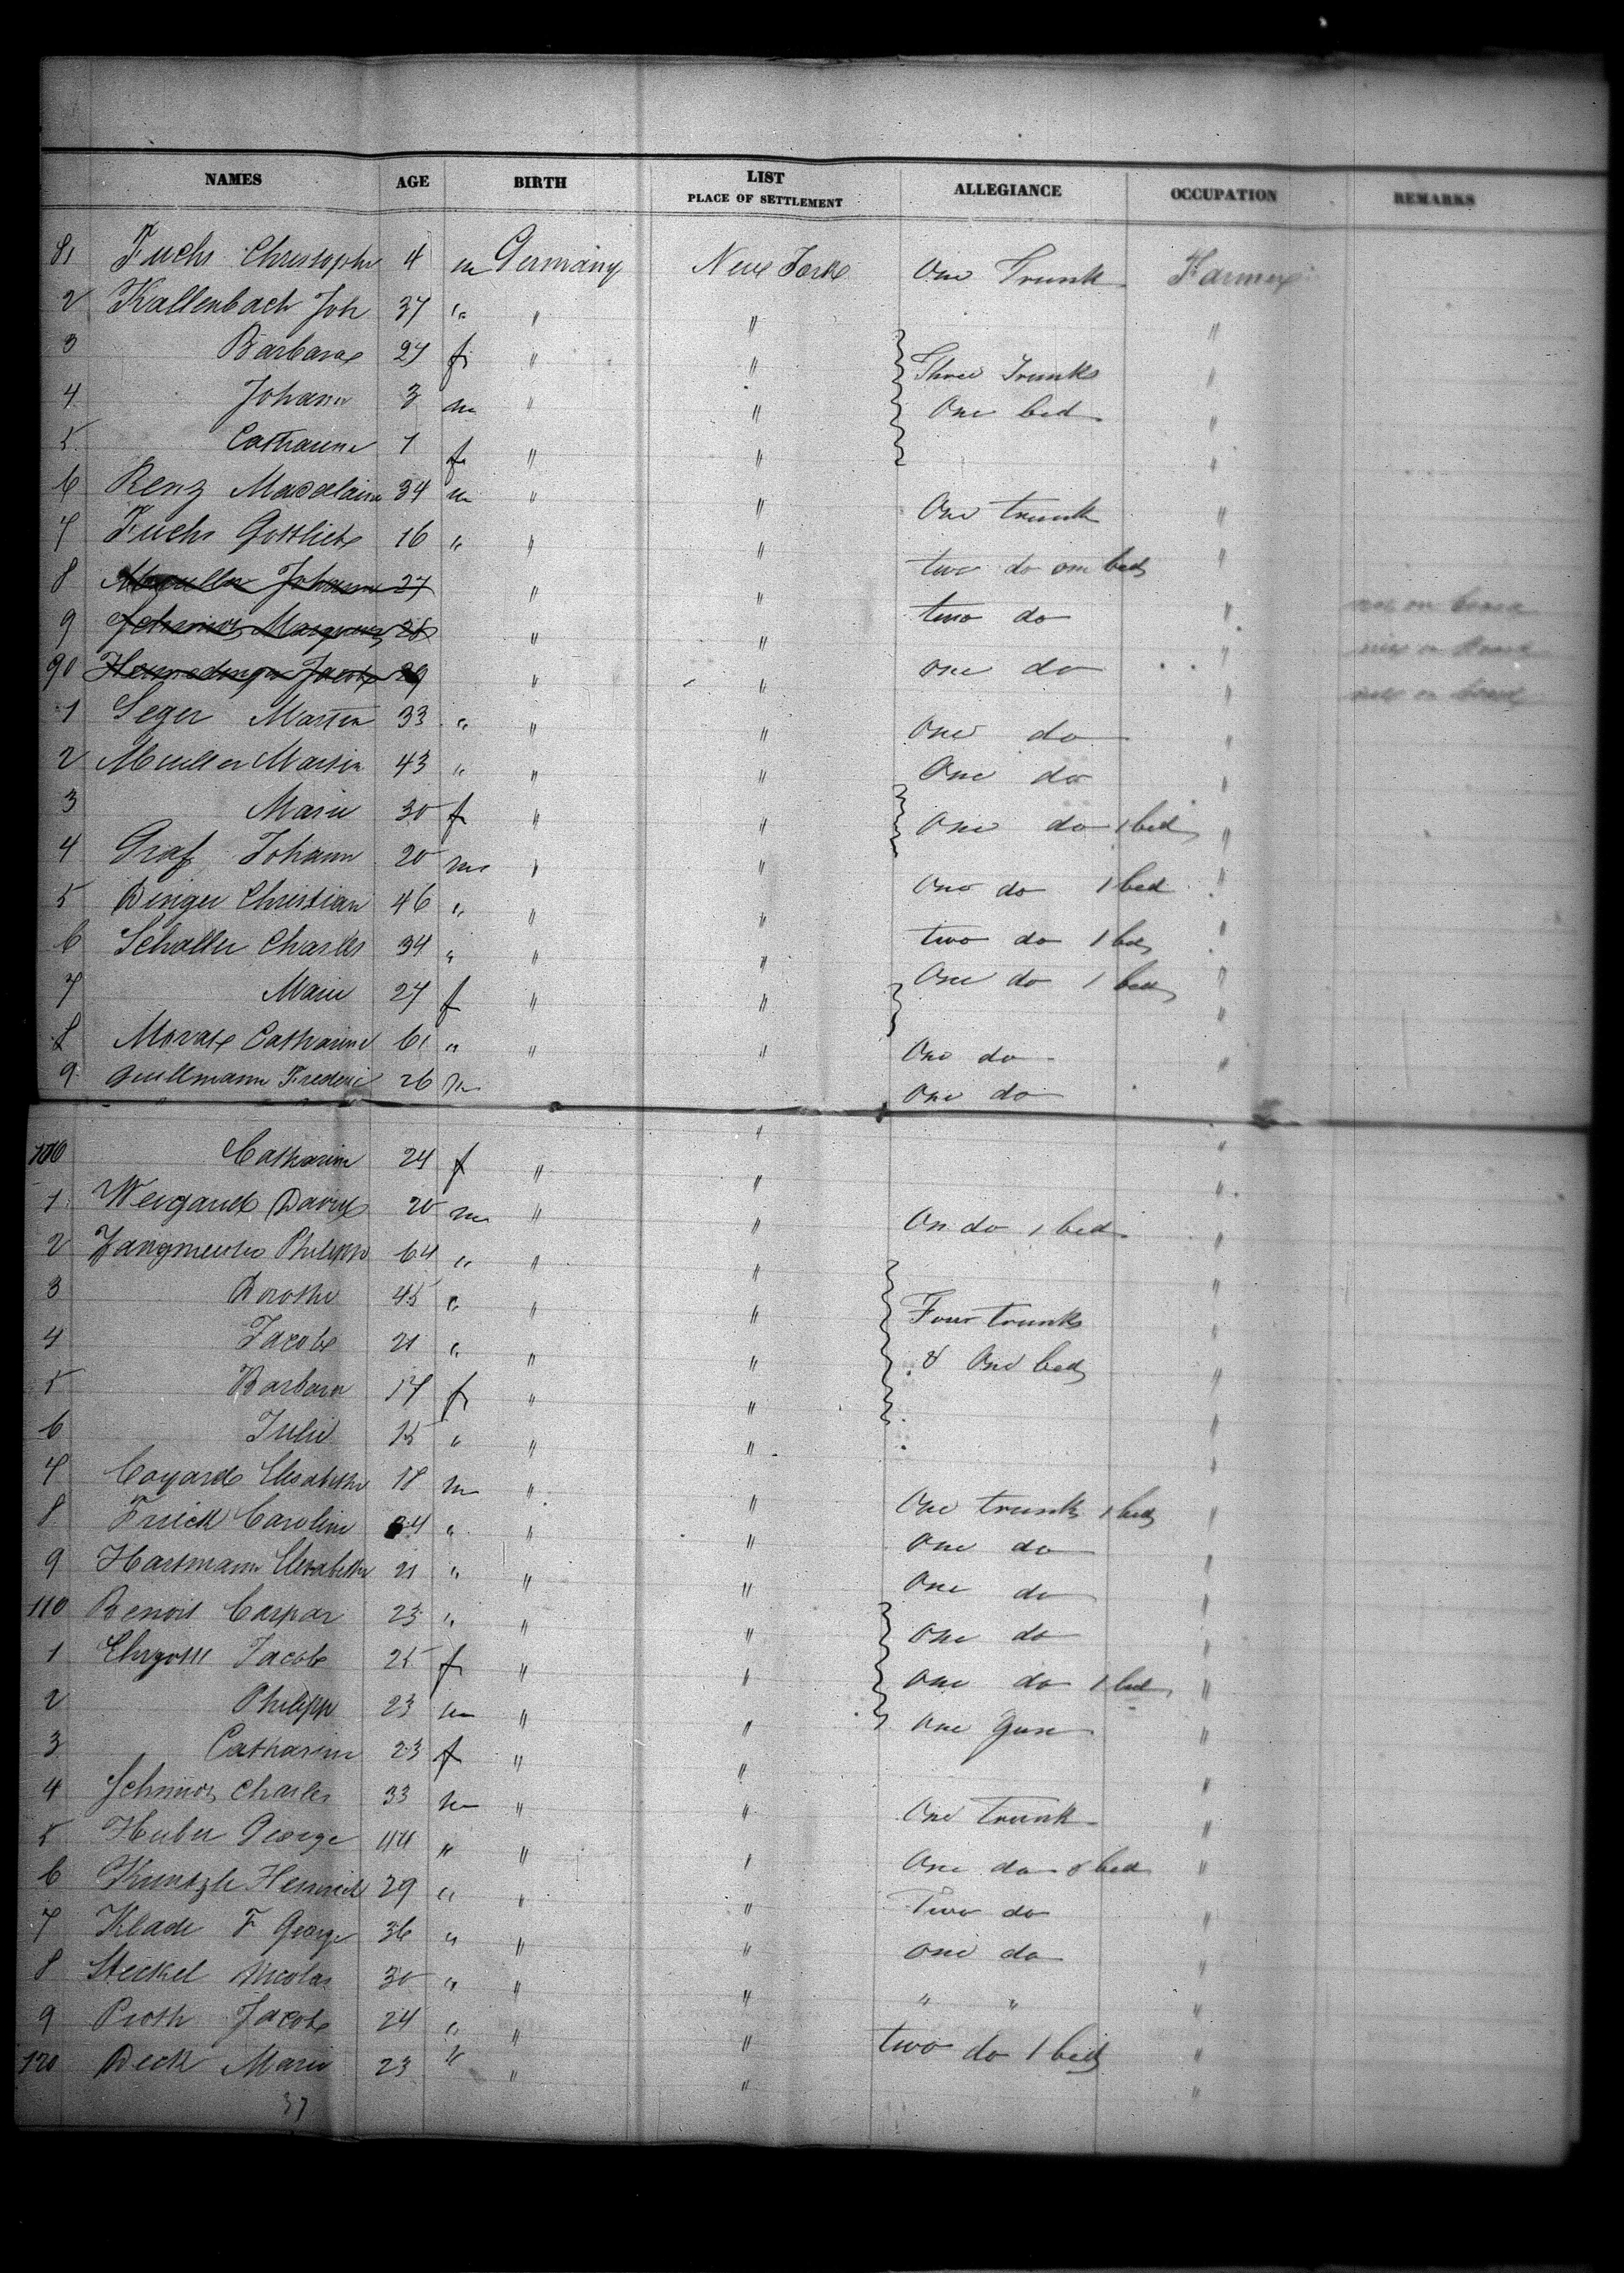 NAMES AGE BIRTH LIST PLACE OF SETTLEMENT ALLEGIANCE OCCUPATION REMARKS
81 Fuchs Christophe 4 m Germany New York One Trunk Farmer
2 Kallenbach Joh 37 " " " "
3 Barbara 27 f " " Three Trunks "
4 Johann 3 m " " One bed "
5 Catharine 1 f " " "
6 Renz Madelaine 34 m " " One trunk "
7 Fuchs Gottlieb 16 " " " two do one bed "
8 Mueller Johann 27 " " two do " not on board
9 Schmidt 28 " " one do " not on board
90 Jacob 29 " " " not on board
1 Seger Martin 33 " " " One do "
2 Mueller Martin 43 " " " One do "
3 Marie 30 f " " One do 1 bed "
4 Graf Johann 20 m " " One do 1 bed "
5 Dinger Christian 46 " " " two do 1 bed "
6 Schaller Charles 34 " " " One do 1 bed "
7 Marie 27 f " " "
8 Catharine 61 " " " One do "
9 Frederic 26 m One do
100 Catharine 24 f " " "
1 Weigand David 20 m " " On do 1 bed "
2 Zangmeister Philippe 64 " " " "
3 Dorothe 45 " " " Four trunks "
4 Jacob 21 " " " & One bed "
5 Barbara 17 f " " "
6 Julie 15 " " " "
7 Elisabethe 18 m " " One trunk 1 bed "
8 Frick Caroline 24 " " " One do "
9 Hartmann Elisabethe 21 " " " One do "
110 Benoit Caspar 23 " " " One do "
1 Jacob 25 f " " One do 1 bed "
2 Philipp 23 m " " One Gun "
3 Catharine 23 f " " "
4 Schmidt Charles 33 m " " One trunk "
5 Huber George 44 " " " One do & bed "
6 Kuntzle Heinrich 29 " " " Two do "
7 Klade F George 36 " " " One do "
8 Steckel Nicolas 30 " " " " " "
9 Proth Jacob 24 " " " two do 1 bed "
120 Deck Marie 23 " " " "
37